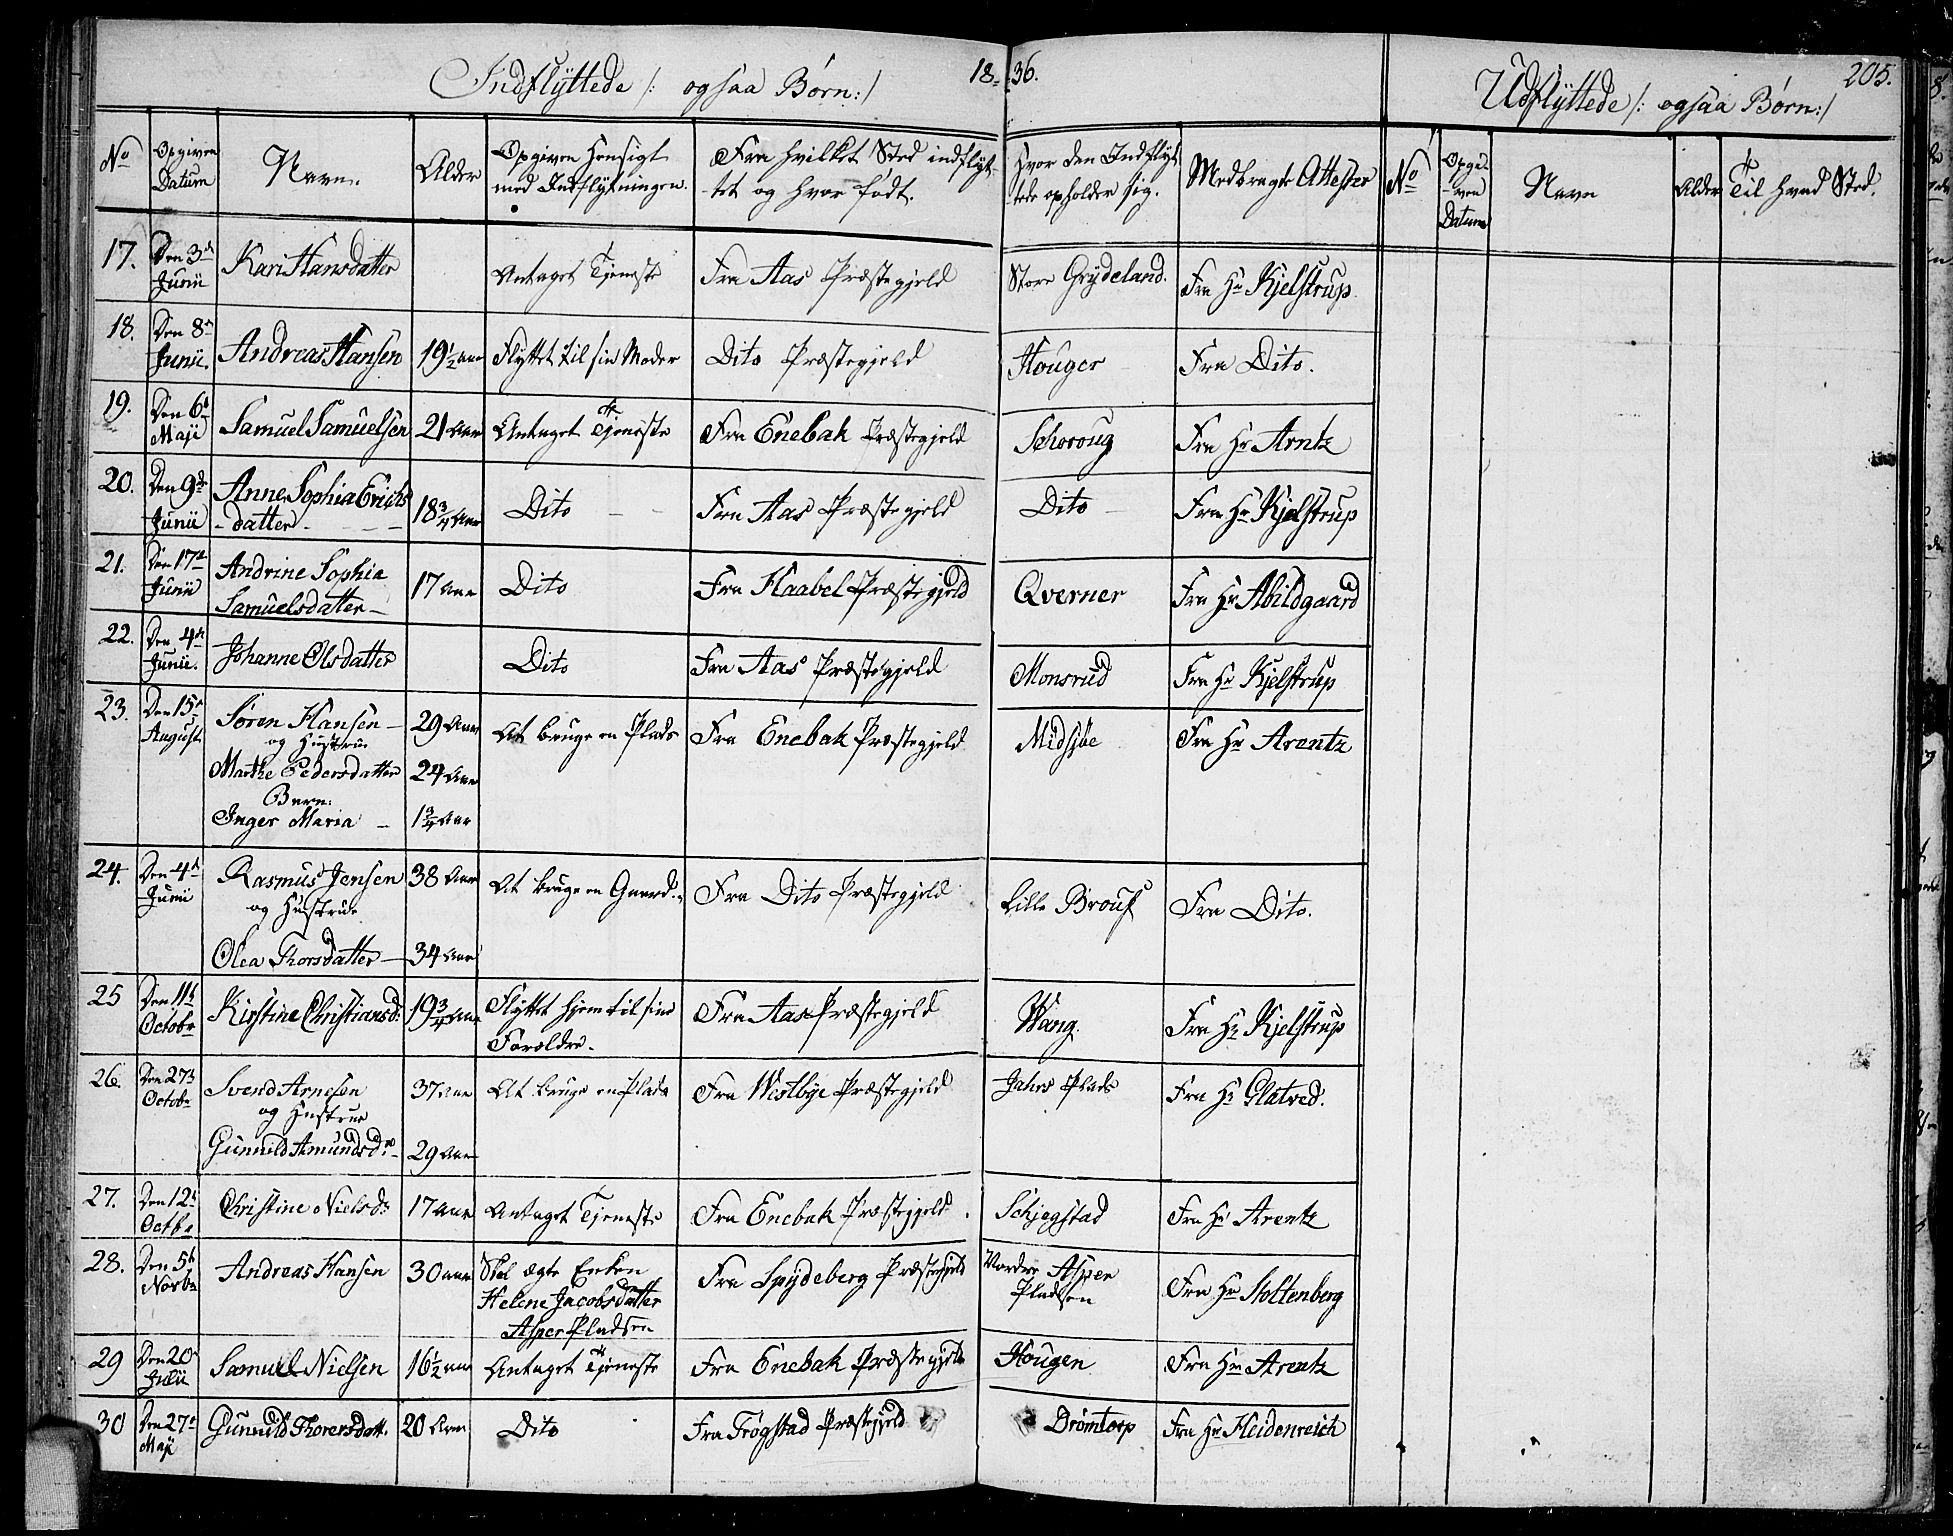 Indflyttede /: ogsaa Børn:/
18. 36.
Udflyttede /: ogsaa Børn:/
205.
No
Opgiven Datum
Navn.
Alder
Opgiven Hensigt
med Indflytningen.
Fra hvilket Sted indflyt-
tet og hvor født.
Hvor den Indflyt-
tede opholder sig.
Medbragte Attester
No
Opgi-
ven
Datum
Navn
Alder
Til hvad Sted.
17. Den 3de Junii Kari Hansdatter Antaget Tjeneste Fra Aas Præstegjeld Store Grydeland. Fra Hr Kjelstrup.
18. Den 8de Junii. Andreas Hansen 19½ Aar Flyttet til sin Moder Dito Præstegjeld Houger Fra Dito.
19. Den 6te Maji Samuel Samuelsen 21 Aar Antaget Tjeneste Fra Enebak Præstegjeld Schoroug Fra Hr Arntz
20. Den 9de Junii Anne Sophia Erichs-
datter 18¾ Aar Dito Fra Aas Præstegjeld Dito Fra Hr Kjelstrup
21. Den 17de Junii Andrine Sophia
Samuelsdatter 17 Aar Dito Fra Haabel Præstegjeld Qverner Fra Hr Abildgaard
22. Den 4de Junii. Johanne Olsdatter Dito Fra Aas Præstegjeld Monsrud Fra Hr Kjelstrup
23. Den 15de August Søren Hansen 29 Aar At bruge en Plads Fra Enebak Præstegjeld Midsjøe Fra Hr Arentz
og Hustrue
Marthe Pedersdatter 24 Aar
Barn:
Inger Maria 1¾ Aar
24. Den 4de Junii Rasmus Jensen 38 Aar At bruge en Gaard. Fra Dito Præstegjeld Lille Brouf Fra Dito.
og Hustrue
Olea Thorsdatter 34 Aar
25 Den 11te Octobr Kirstine Christiansd: 19¾ Aar Flyttet hjem til sine
Forældre. Fra Aas Præstegjeld Wang. Fra Hr Kjelstrup
26. Den 27de Octobr Svend Arnesen 37 Aar At bruge en Plads Fra Westbye Præstegjeld Jahrs Plads Fra Hr Glatved.
og Hustrue
Gunnild Amundsdr 29 Aar
27. Den 12te Octbr Christine Nielsdr 17 Aar Antaget Tjeneste Fra Enebak Præstegjeld. Schjegstad Fra Hr Arentz
28. Den 5te Novbr Andreas Hansen 30 Aar Skal ægte Enken
Helene Jacobsdatter
Asper Pladsen Fra Spydeberg Præstegjeld Nordre Asper
Pladsen Fra Hr Stoltenberg
29 Den 20de Julii Samuel Nielsen 16½ Aar Antaget Tjeneste Fra Enebak Præstegjeld Hougen Fra Hr Arentz
30 Den 27de Maji Gunnild Thorersdatt. 20 Aar Dito Fra Trøgstad Præstegjeld Drømtorp Fra Hr Heidenreich